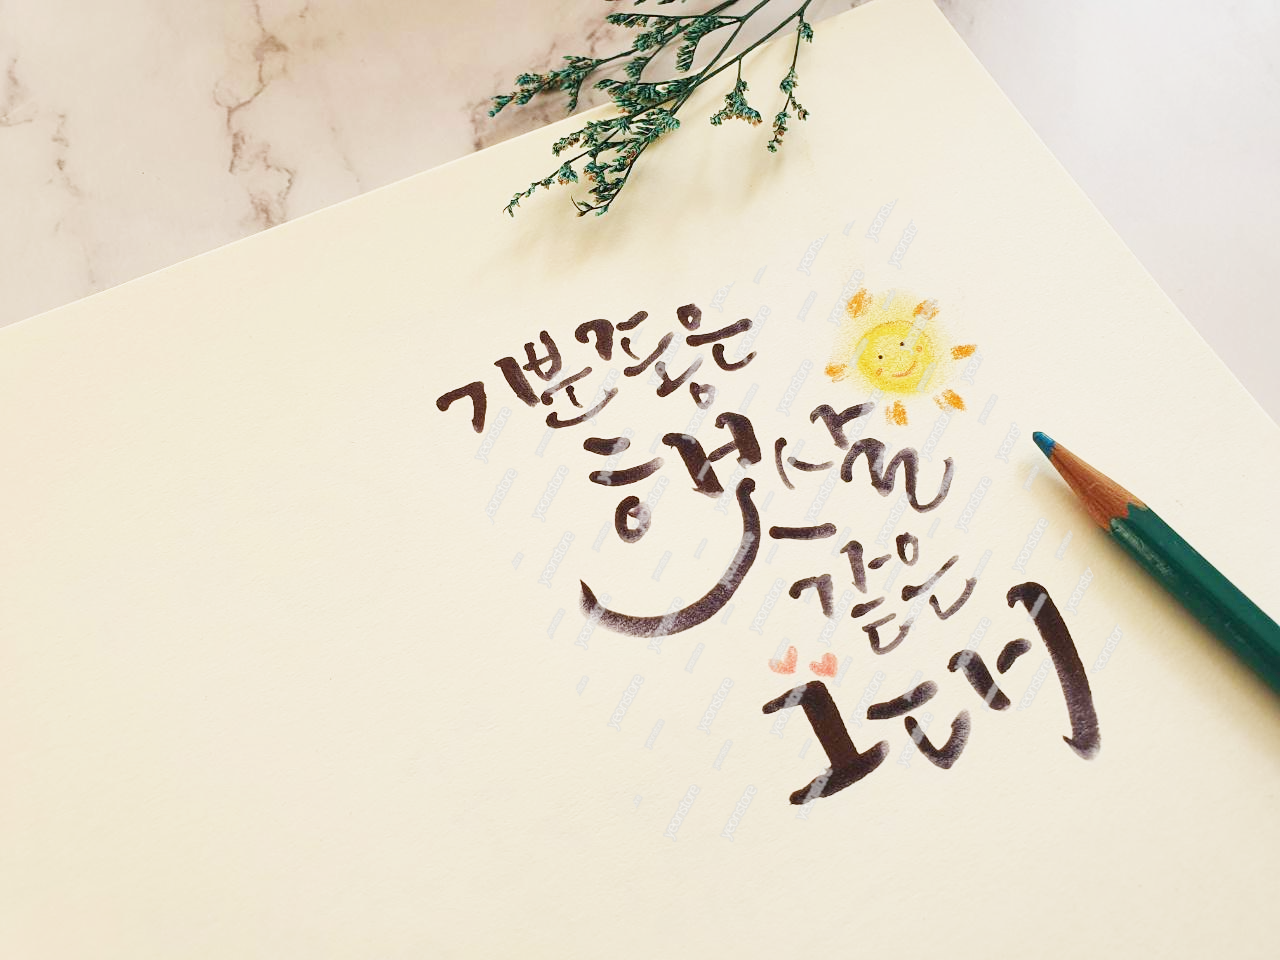 기분좋은
햇살
같은
그대
yoonstore